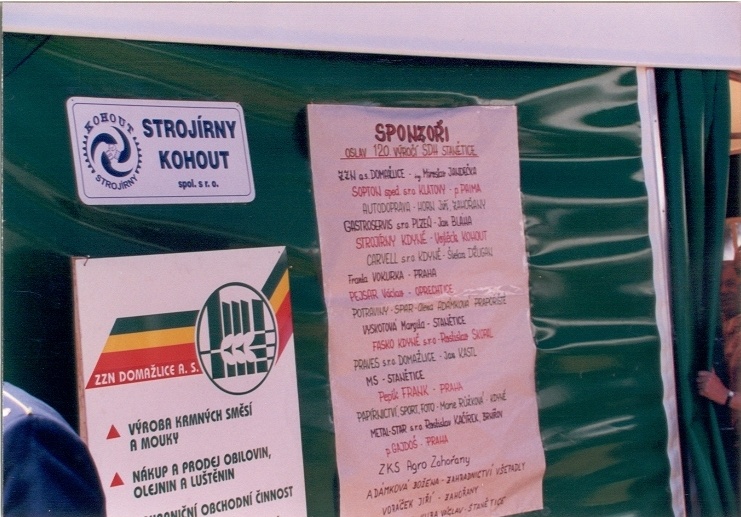 KOHOUT
STROJÍRNY
STROJÍRNY
KOHOUT
spol. s r. o.
ZZN DOMAŽLICE A. S.
VÝROBA KRMNÝCH SMĚSÍ
A MOUKY
NÁKUP A PRODEJ OBILOVIN,
OLEJNIN A LUŠTĚNIN
OBCHODNÍ ČINNOST
SPONZOŘI
OSLAV 120 VÝROČÍ SDH STANĚTICE
ZZN a.s. DOMAŽLICE - ing. Miroslav JANDEČKA
SOPTON sped. s.r.o KLATOVY - p. PRIMA
AUTODOPRAVA - HORN Jiří ZAHOŘANY
GASTROSERVIS s.r.o PLZEŇ - Jan BLÁHA
STROJÍRNY KDYNĚ - Vojtěch KOHOUT
CARVELL s.r.o KDYNĚ - Štefan
Franta VOKURKA - PRAHA
PEJSAR Václav - OPRECHTICE
POTRAVINY - SPAR - ADÁMKOVÁ
VÝSKOTOVÁ - STANĚTICE
FASKO KDYNĚ s.r.o - Rostislav ŠKORIL
PRAVES s.r.o DOMAŽLICE - Jan KASTL
MS - STANĚTICE
Pepík FRANK - PRAHA
PAPÍRNICTVÍ, SPORT, FOTO - Marie RŮŽKOVÁ KDYNĚ
METAL-STAR s.r.o Rostislav KAČÍREK, BRNÍŘOV
p. GAJDOŠ - PRAHA
ZKS Agro Zahořany
ADÁMKOVÁ BOŽENA - ZAHRADNICTVÍ VŠEPADLY
VORÁČEK JIŘÍ - ZAHOŘANY
VÁCLAV - STANĚTICE